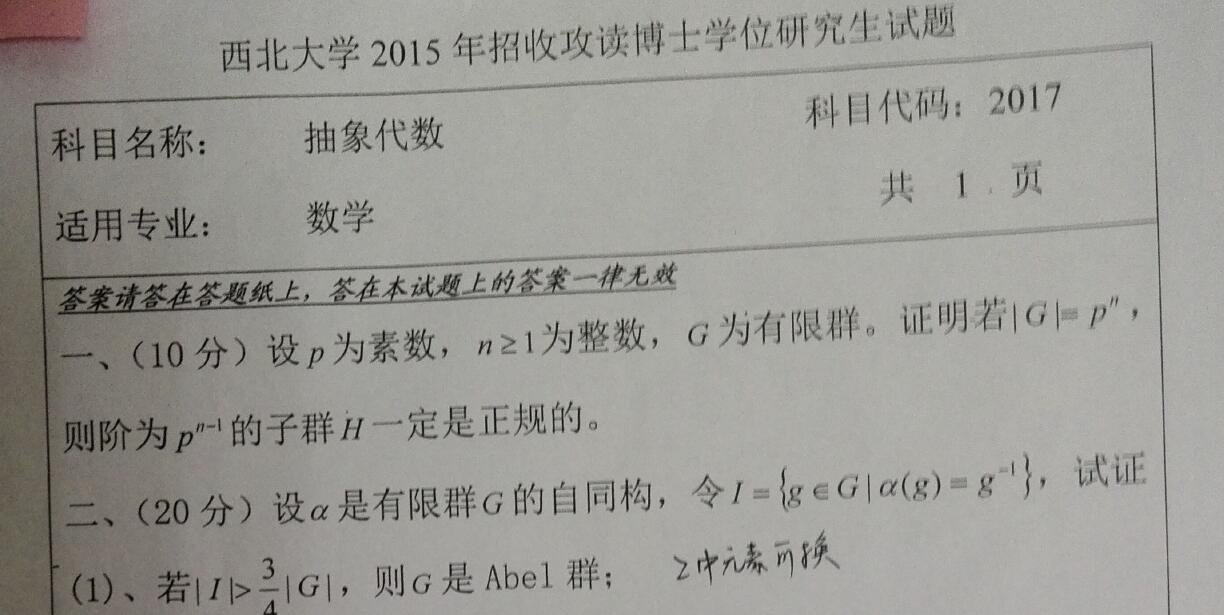 西北大学 2015 年招收攻读博士学位研究生试题
科目名称： 抽象代数 科目代码：2017
适用专业： 数学 共 1 页
答案请答在答题纸上，答在本试题上的答案一律无效
一、（10 分）设 p 为素数，n≥1为整数，G 为有限群。证明若|G|=pⁿ，
则阶为 pⁿ⁻¹ 的子群 H 一定是正规的。
二、（20 分）设 α 是有限群 G 的自同构，令 I={g∈G|α(g)=g⁻¹}，试证
(1)、若|I|>3/4|G|，则 G 是 Abel 群； 中元素可换